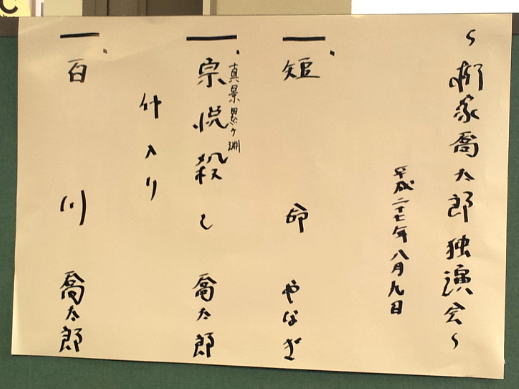 〜柳家喬太郎独演会〜
平成二十七年八月九日
一、短命 やなぎ
真景累ヶ淵
一、宗悦殺し 喬太郎
仲入り
一、百川 喬太郎
C